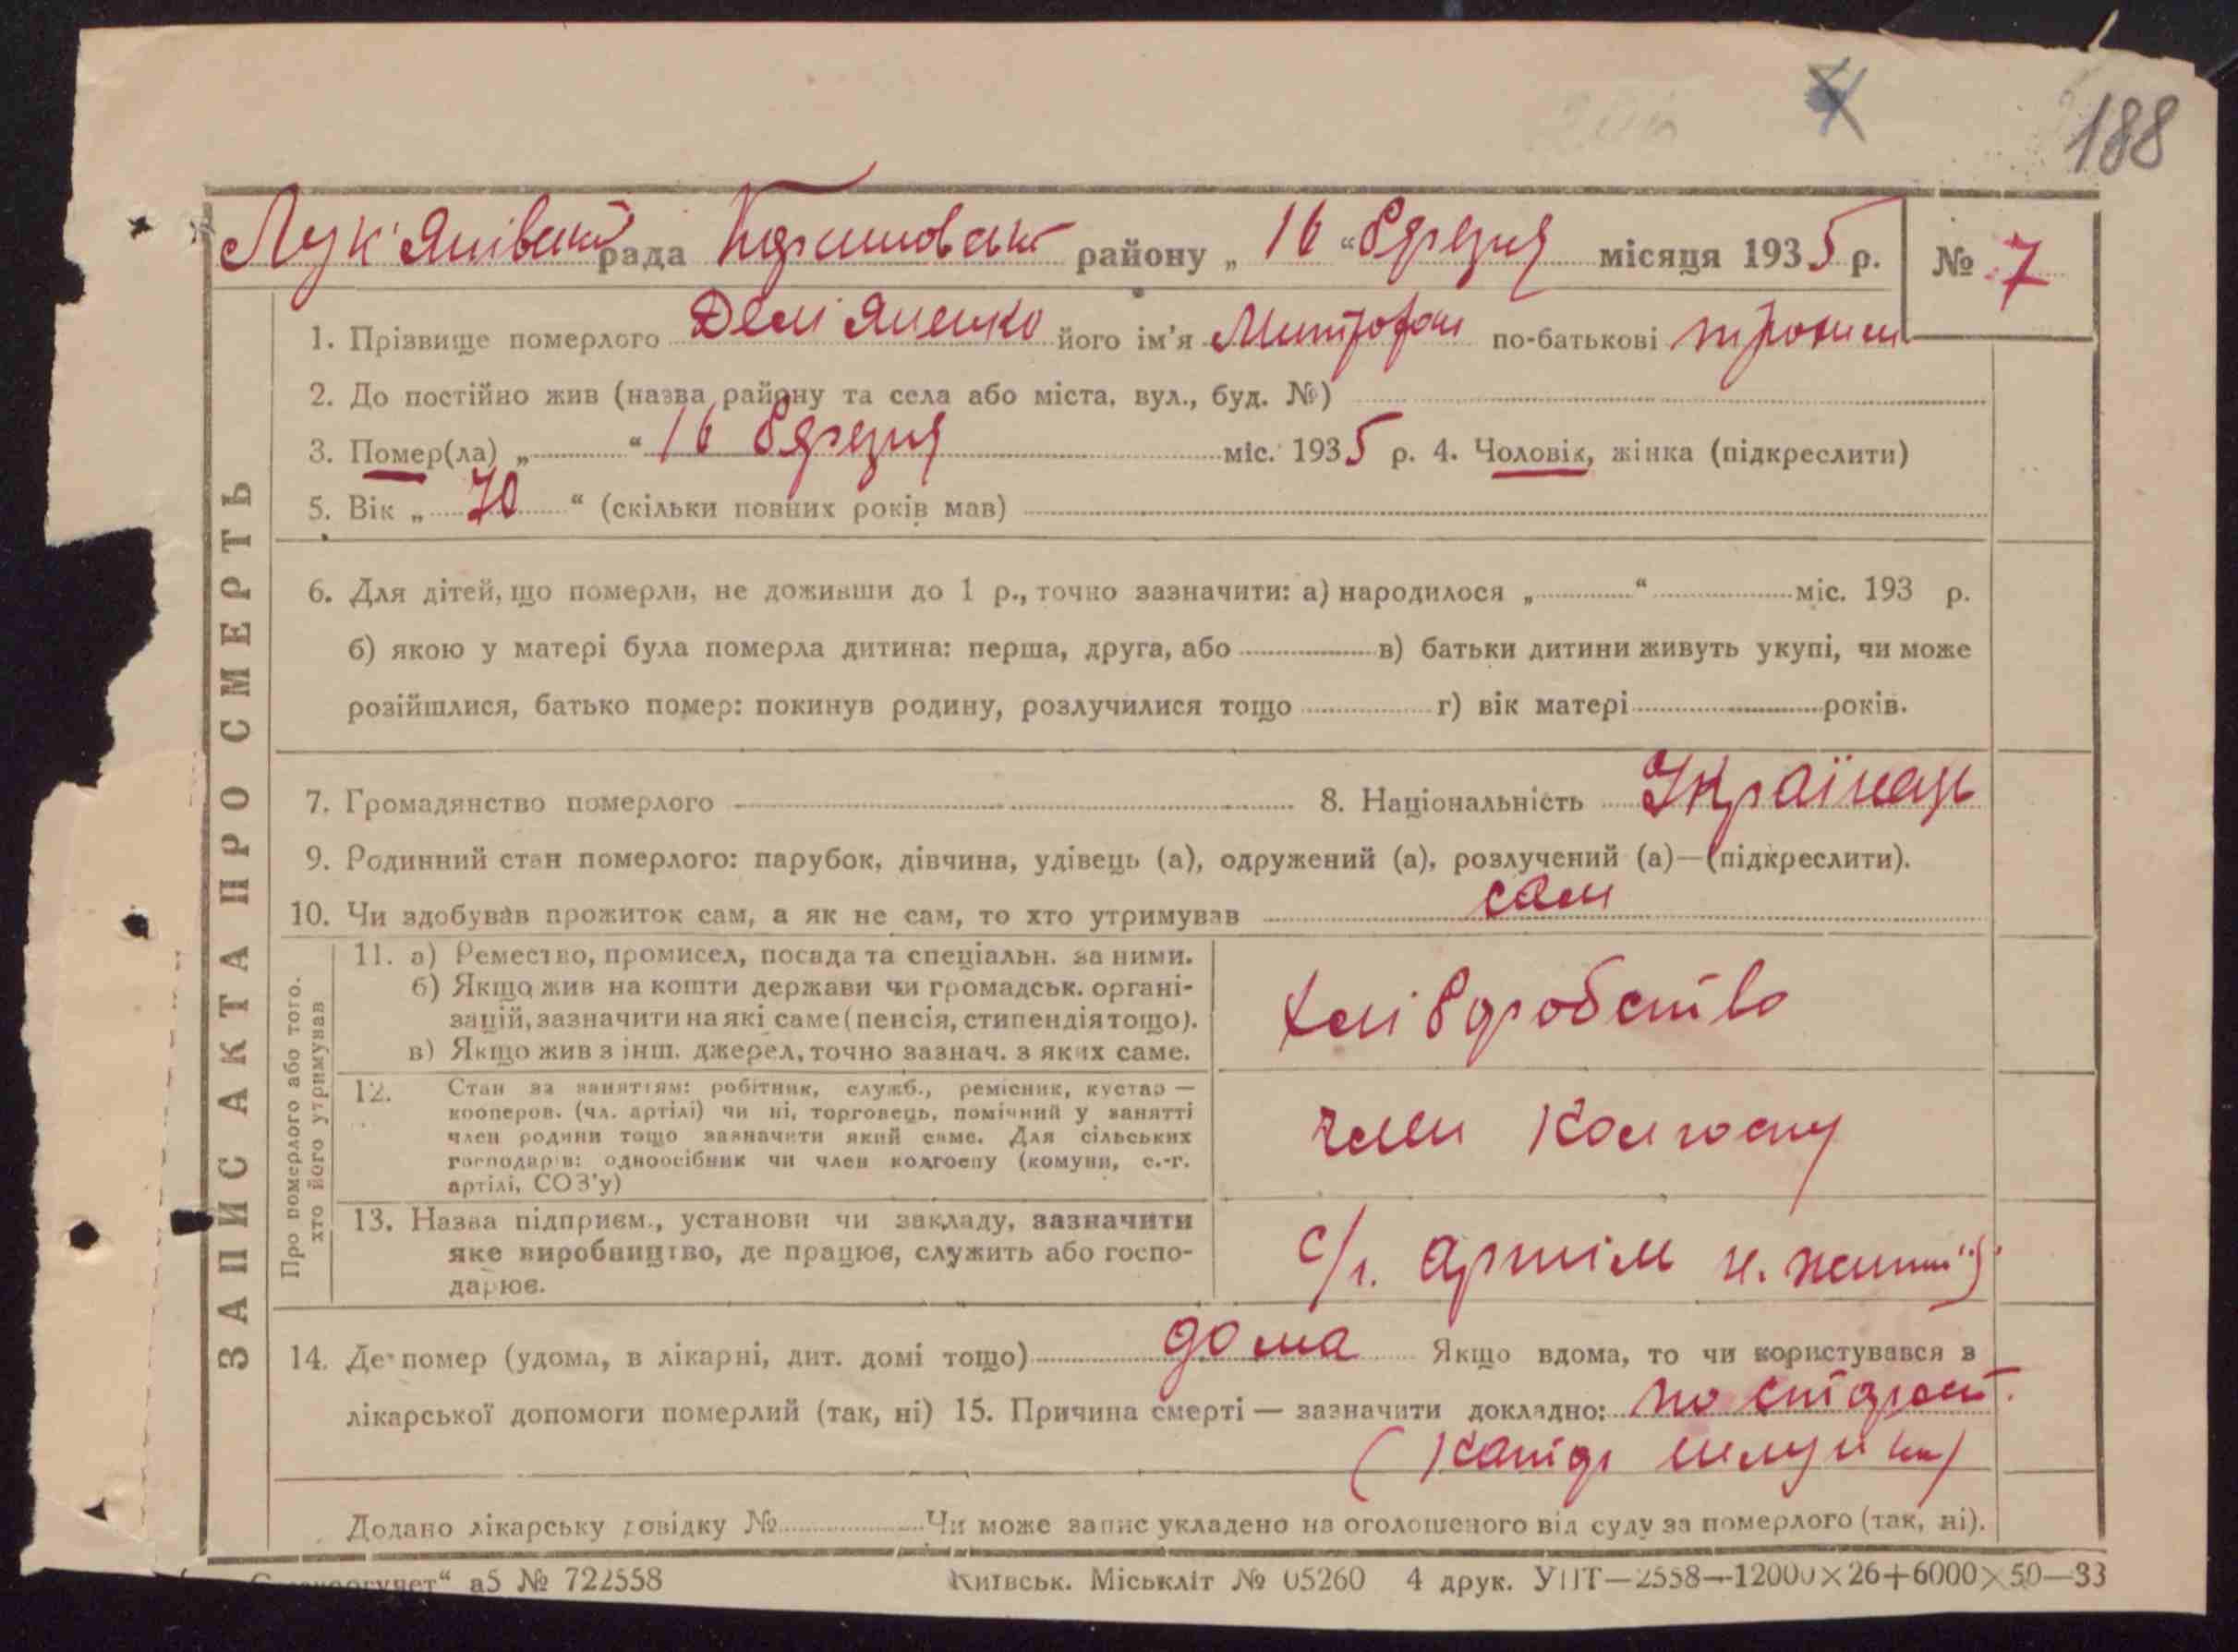 188
Лук'янівськ рада району „ 16 “ березня місяця 1935 р. № 7
1. Прізвище померлого Дем'яненко його ім'я Митрофан по-батькові
2. До постійно жив (назва району та села або міста, вул., буд. №)
3. Помер(ла) „ “ 16 березня міс. 1935 р. 4. Чоловік, жінка (підкреслити)
5. Вік „ 70 “ (скільки повних років мав)
6. Для дітей, що померли, не доживши до 1 р., точно зазначити: а) народилося „ “ міс. 193 р.
б) якою у матері була померла дитина: перша, друга, або в) батьки дитини живуть укупі, чи може
розійшлися, батько помер: покинув родину, розлучилися тощо г) вік матері років.
7. Громадянство померлого 8. Національність Українець
9. Родинний стан померлого: парубок, дівчина, удівець (а), одружений (а), розлучений (а)—(підкреслити).
10. Чи здобував прожиток сам, а як не сам, то хто утримував сам
ЗАПИС АКТА ПРО СМЕРТЬ
Про померлого або того,
хто його утримував
11. а) Ремество, промисел, посада та спеціальн. за ними.
б) Якщо жив на кошти держави чи громадськ. органі-
зацій, зазначити на які саме (пенсія, стипендія тощо).
в) Якщо жив з інш. джерел, точно зазнач. з яких саме.
хліборобство
12. Стан за заняттям: робітник, служб., ремісник, кустар —
кооперов. (чл. артілі) чи ні, торговець, помічний у занятті
член родини тощо зазначити який саме. Для сільських
господарів: одноосібник чи член колгоспу (комуни, с.-г.
артілі, СОЗ'у)
член колгоспу
13. Назва підприєм., установи чи закладу, зазначити
яке виробництво, де працює, служить або госпо-
дарює.
с/г. артіль н. життя
14. Де помер (удома, в лікарні, дит. домі тощо) дома Якщо вдома, то чи користувався з
лікарської допомоги померлий (так, ні) 15. Причина смерті — зазначити докладно: по старост.
(катар шлунка)
Додано лікарську довідку № Чи може запис укладено на оголошеного від суду за померлого (так, ні).
а5 № 722558 Київськ. Міськліт № 05260 4 друк. УПТ—2558—12000×26+6000×50—33